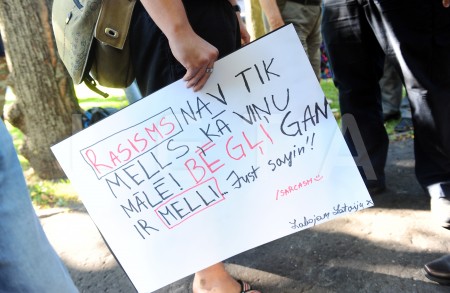 RASISMS NAV TIK
MELLS KĀ VIŅU
MĀLE! BĒGĻI GAN
IR MELLI. Just sayin'!!
/SARCASM
Labojam Latviju